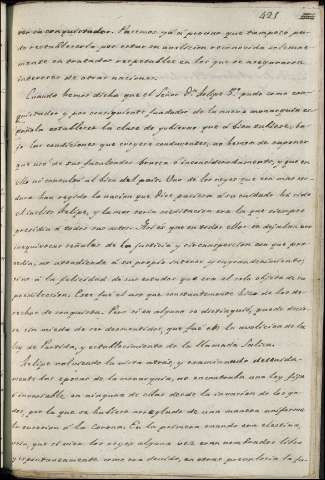 421
ver su conquistador. Parecenos ya á proceso que tampoco pu-
do restablecerla, por estar su abolicion reconocida solemne-
mente en tratados respetables en los que se aseguraron
intereses de otras naciones.
Cuando hemos dicho que el Señor D. Felipe 5.º pudo como con-
quistador y por consiguiente fundador de la nueva monarquia es-
pañola establecer la clase de gobierno que á bien tubiese, ba-
jo las condiciones que creyese conducentes, no hemos de suponer
que usó de sus facultades brusca é inconsideradamente, y que en
ello ni consultó al bien del pais. Uno de los reyes que con mas cor-
dura han regido la nacion que Dios pusiera á su cuidado ha sido
el señor Felipe, y la mas seria meditacion era la que siempre
presidia á todos sus actos. Asi es que en todos ellos se dejaban ver
inequivocas señales de la justicia y circunspeccion con que pro-
cedia, no atendiendo á su propio interes y engrandecimiento,
sino á la felicidad de sus estados que era el solo objeto de su
predileccion. Este fué el uso que constantemente hizo de los de-
rechos de conquista. Pero si en alguno se distinguió, puede decir-
se sin miedo de ser desmentidos, que fué en la abolicion de la
ley de Partida, y establecimiento de la llamada Salica.
Felipe volviendo la vista atrás, y examinando detenida-
mente las epocas de la monarquia, no encontraba una ley fija
é invariable en ninguna de ellas desde la invasion de los go-
dos, por la que se hubiese arreglado de una manera uniforme
la sucesion á la Corona. En la primera cuando era electiva,
veia, que si bien los reyes alguna vez eran nombrados libre
y espontaneamente como era devido, en otras prevalecia la fu-